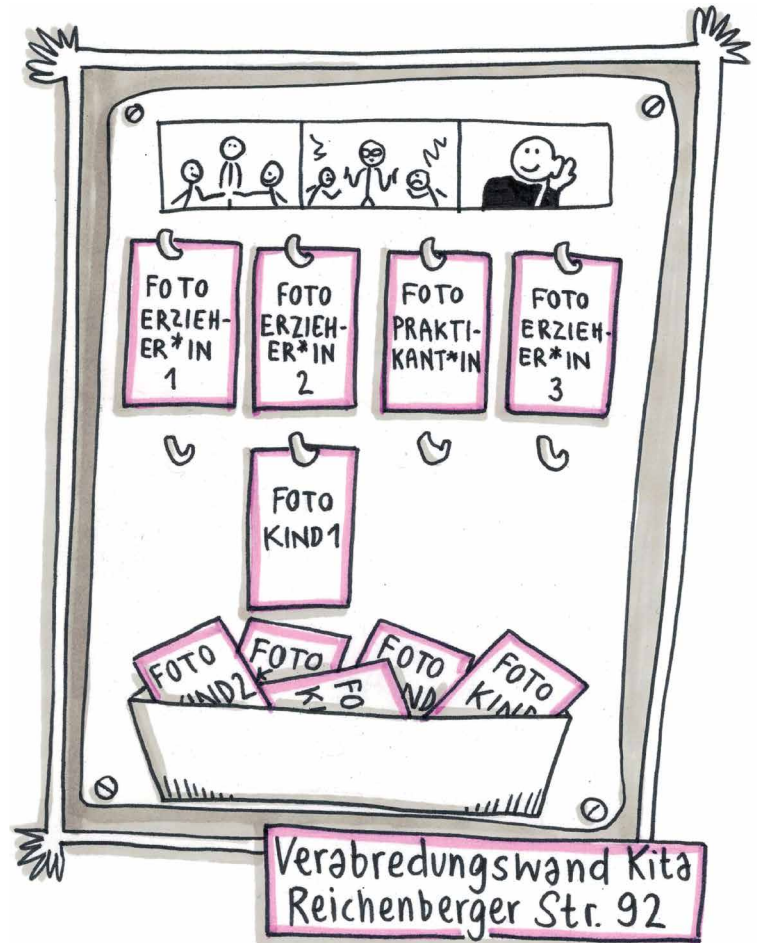 FOTO
ERZIEH-
ER*IN
1
FOTO
ERZIEH-
ER*IN
2
FOTO
PRAKTI-
KANT*IN
FOTO
ERZIEH-
ER*IN
3
FOTO
KIND1
FOTO
KIND2
FOTO
FO
KI
FOTO
ND
FOTO
KIND
Verabredungswand Kita
Reichenberger Str. 92